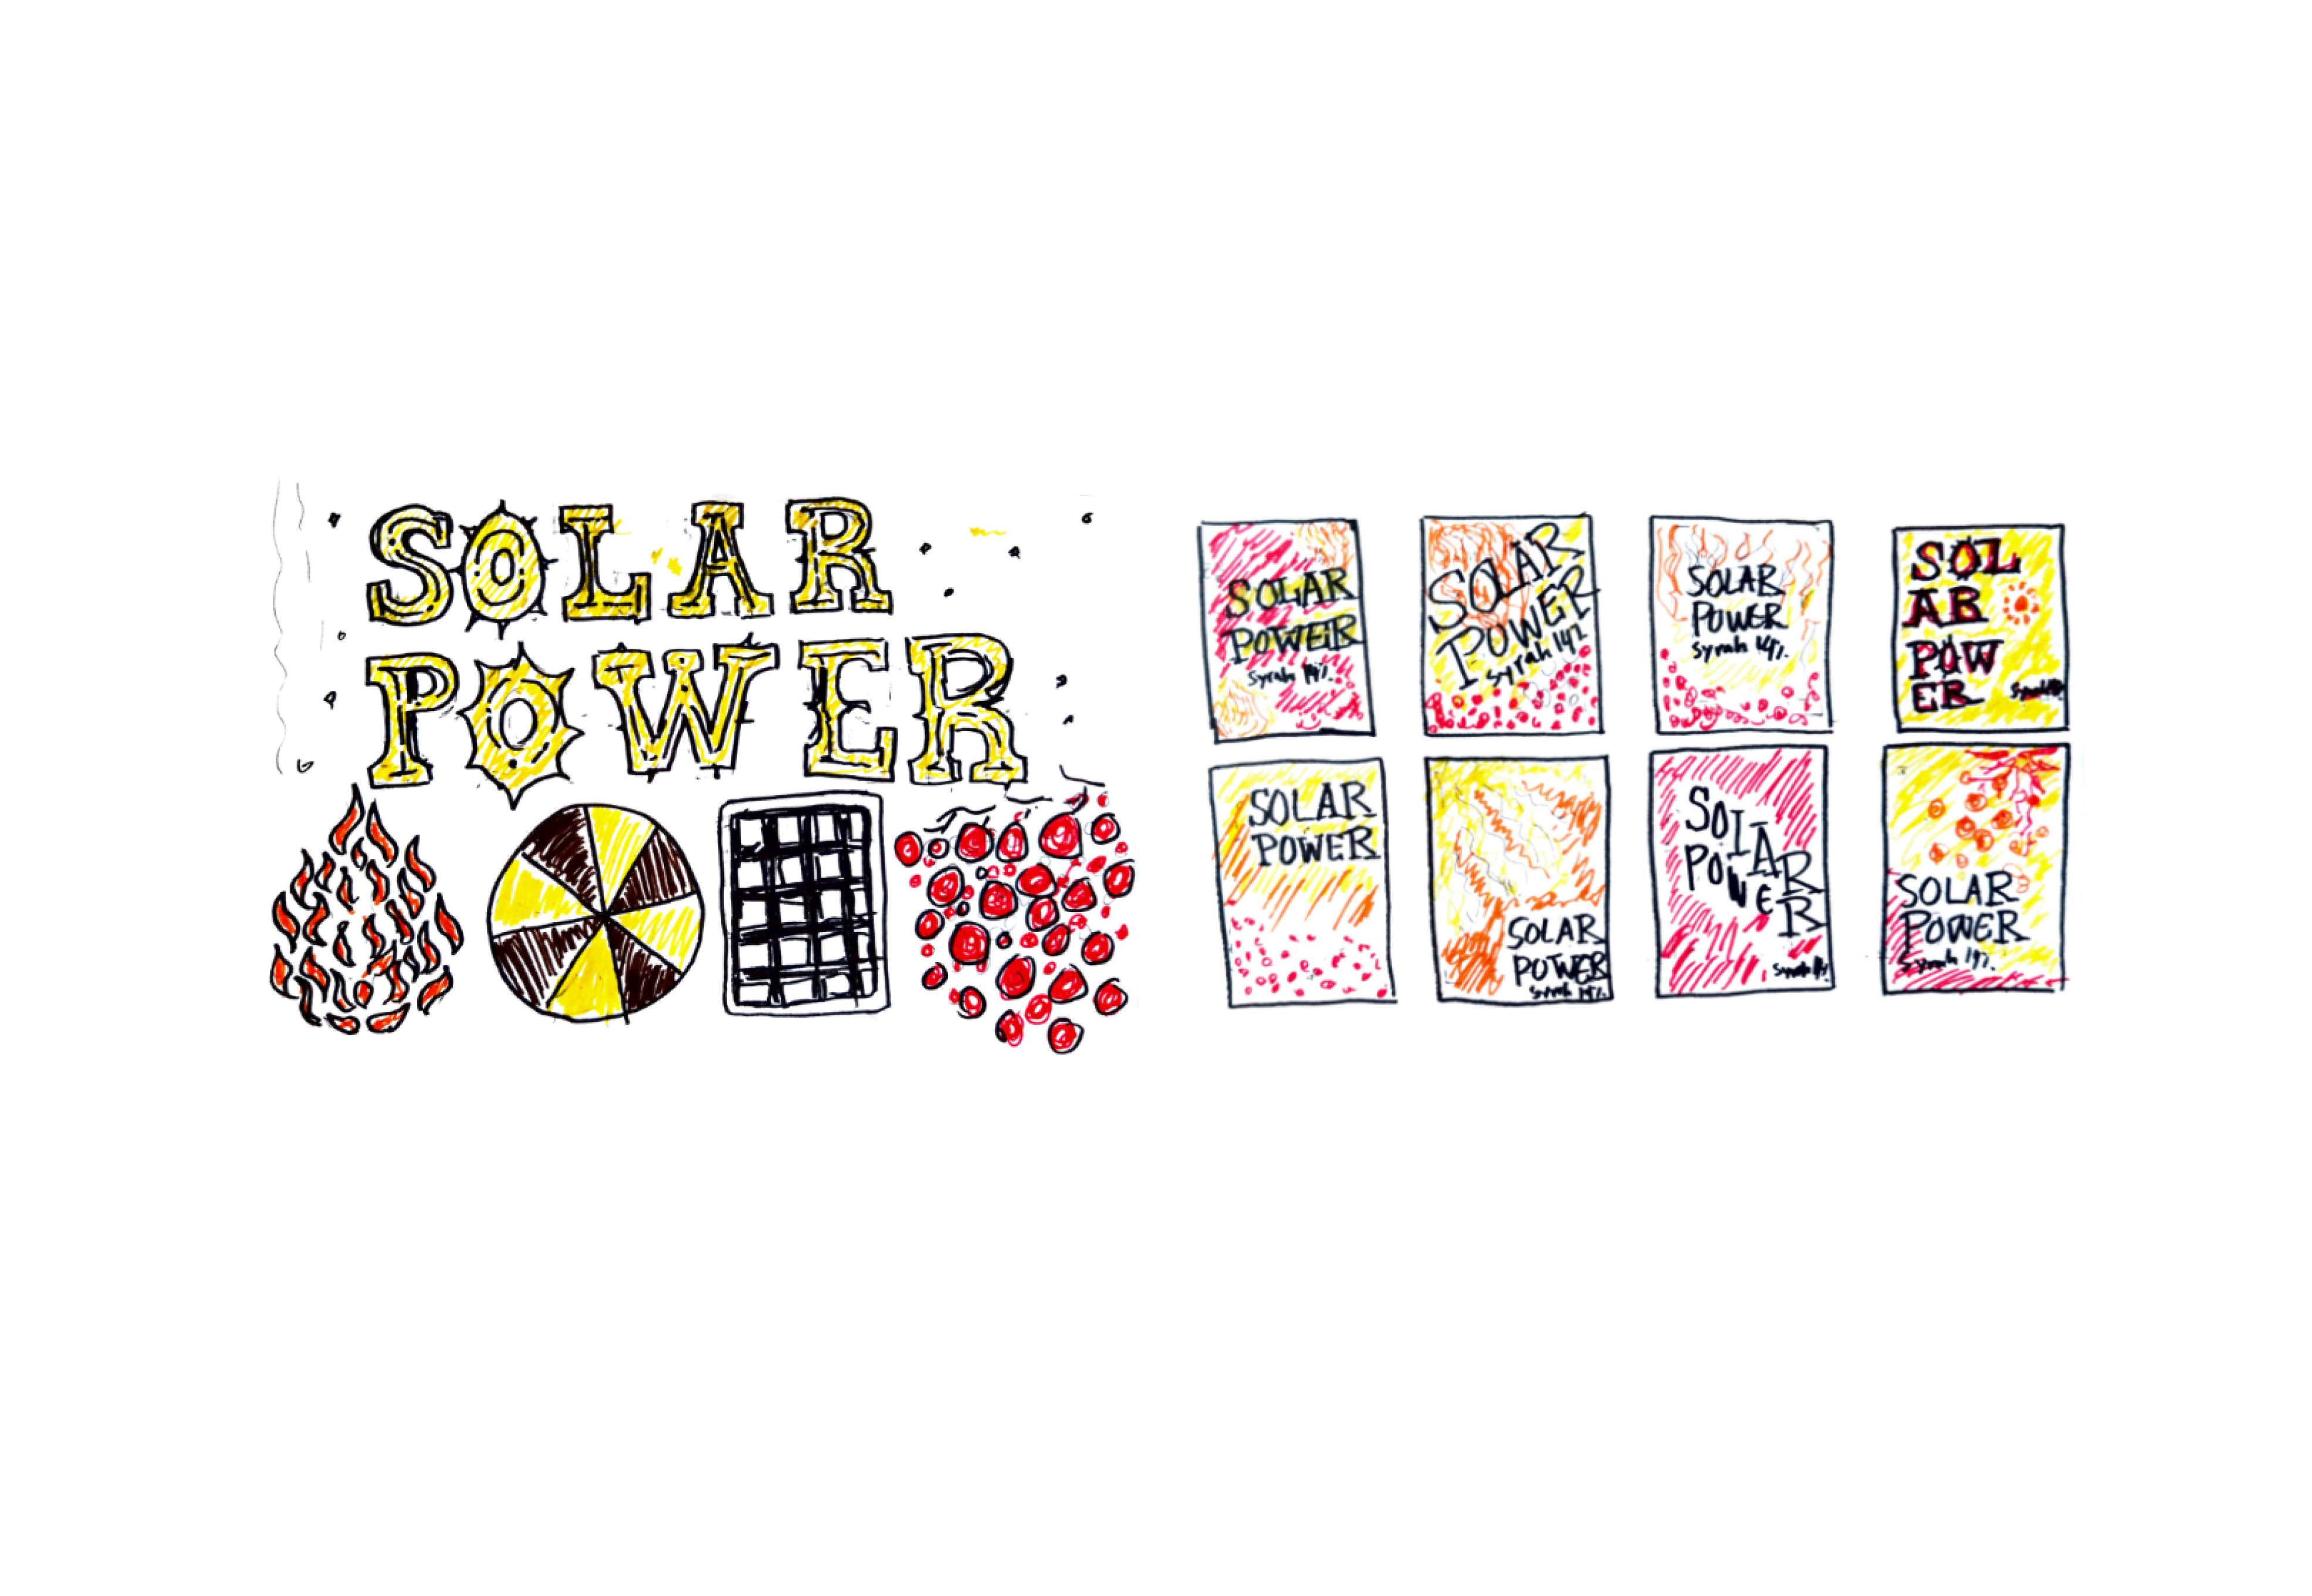 SOLAR
POWER
SOLAR
POWER
Syrah 14%.
SOLAR
POWER
Syrah 14%
SOLAR
POWER
Syrah 14%.
SOL
AR
POW
ER
SOLAR
POWER
SOLAR
POWER
Syrah 14%.
SOLAR
POWER
SOLAR
POWER
Syrah 14%.